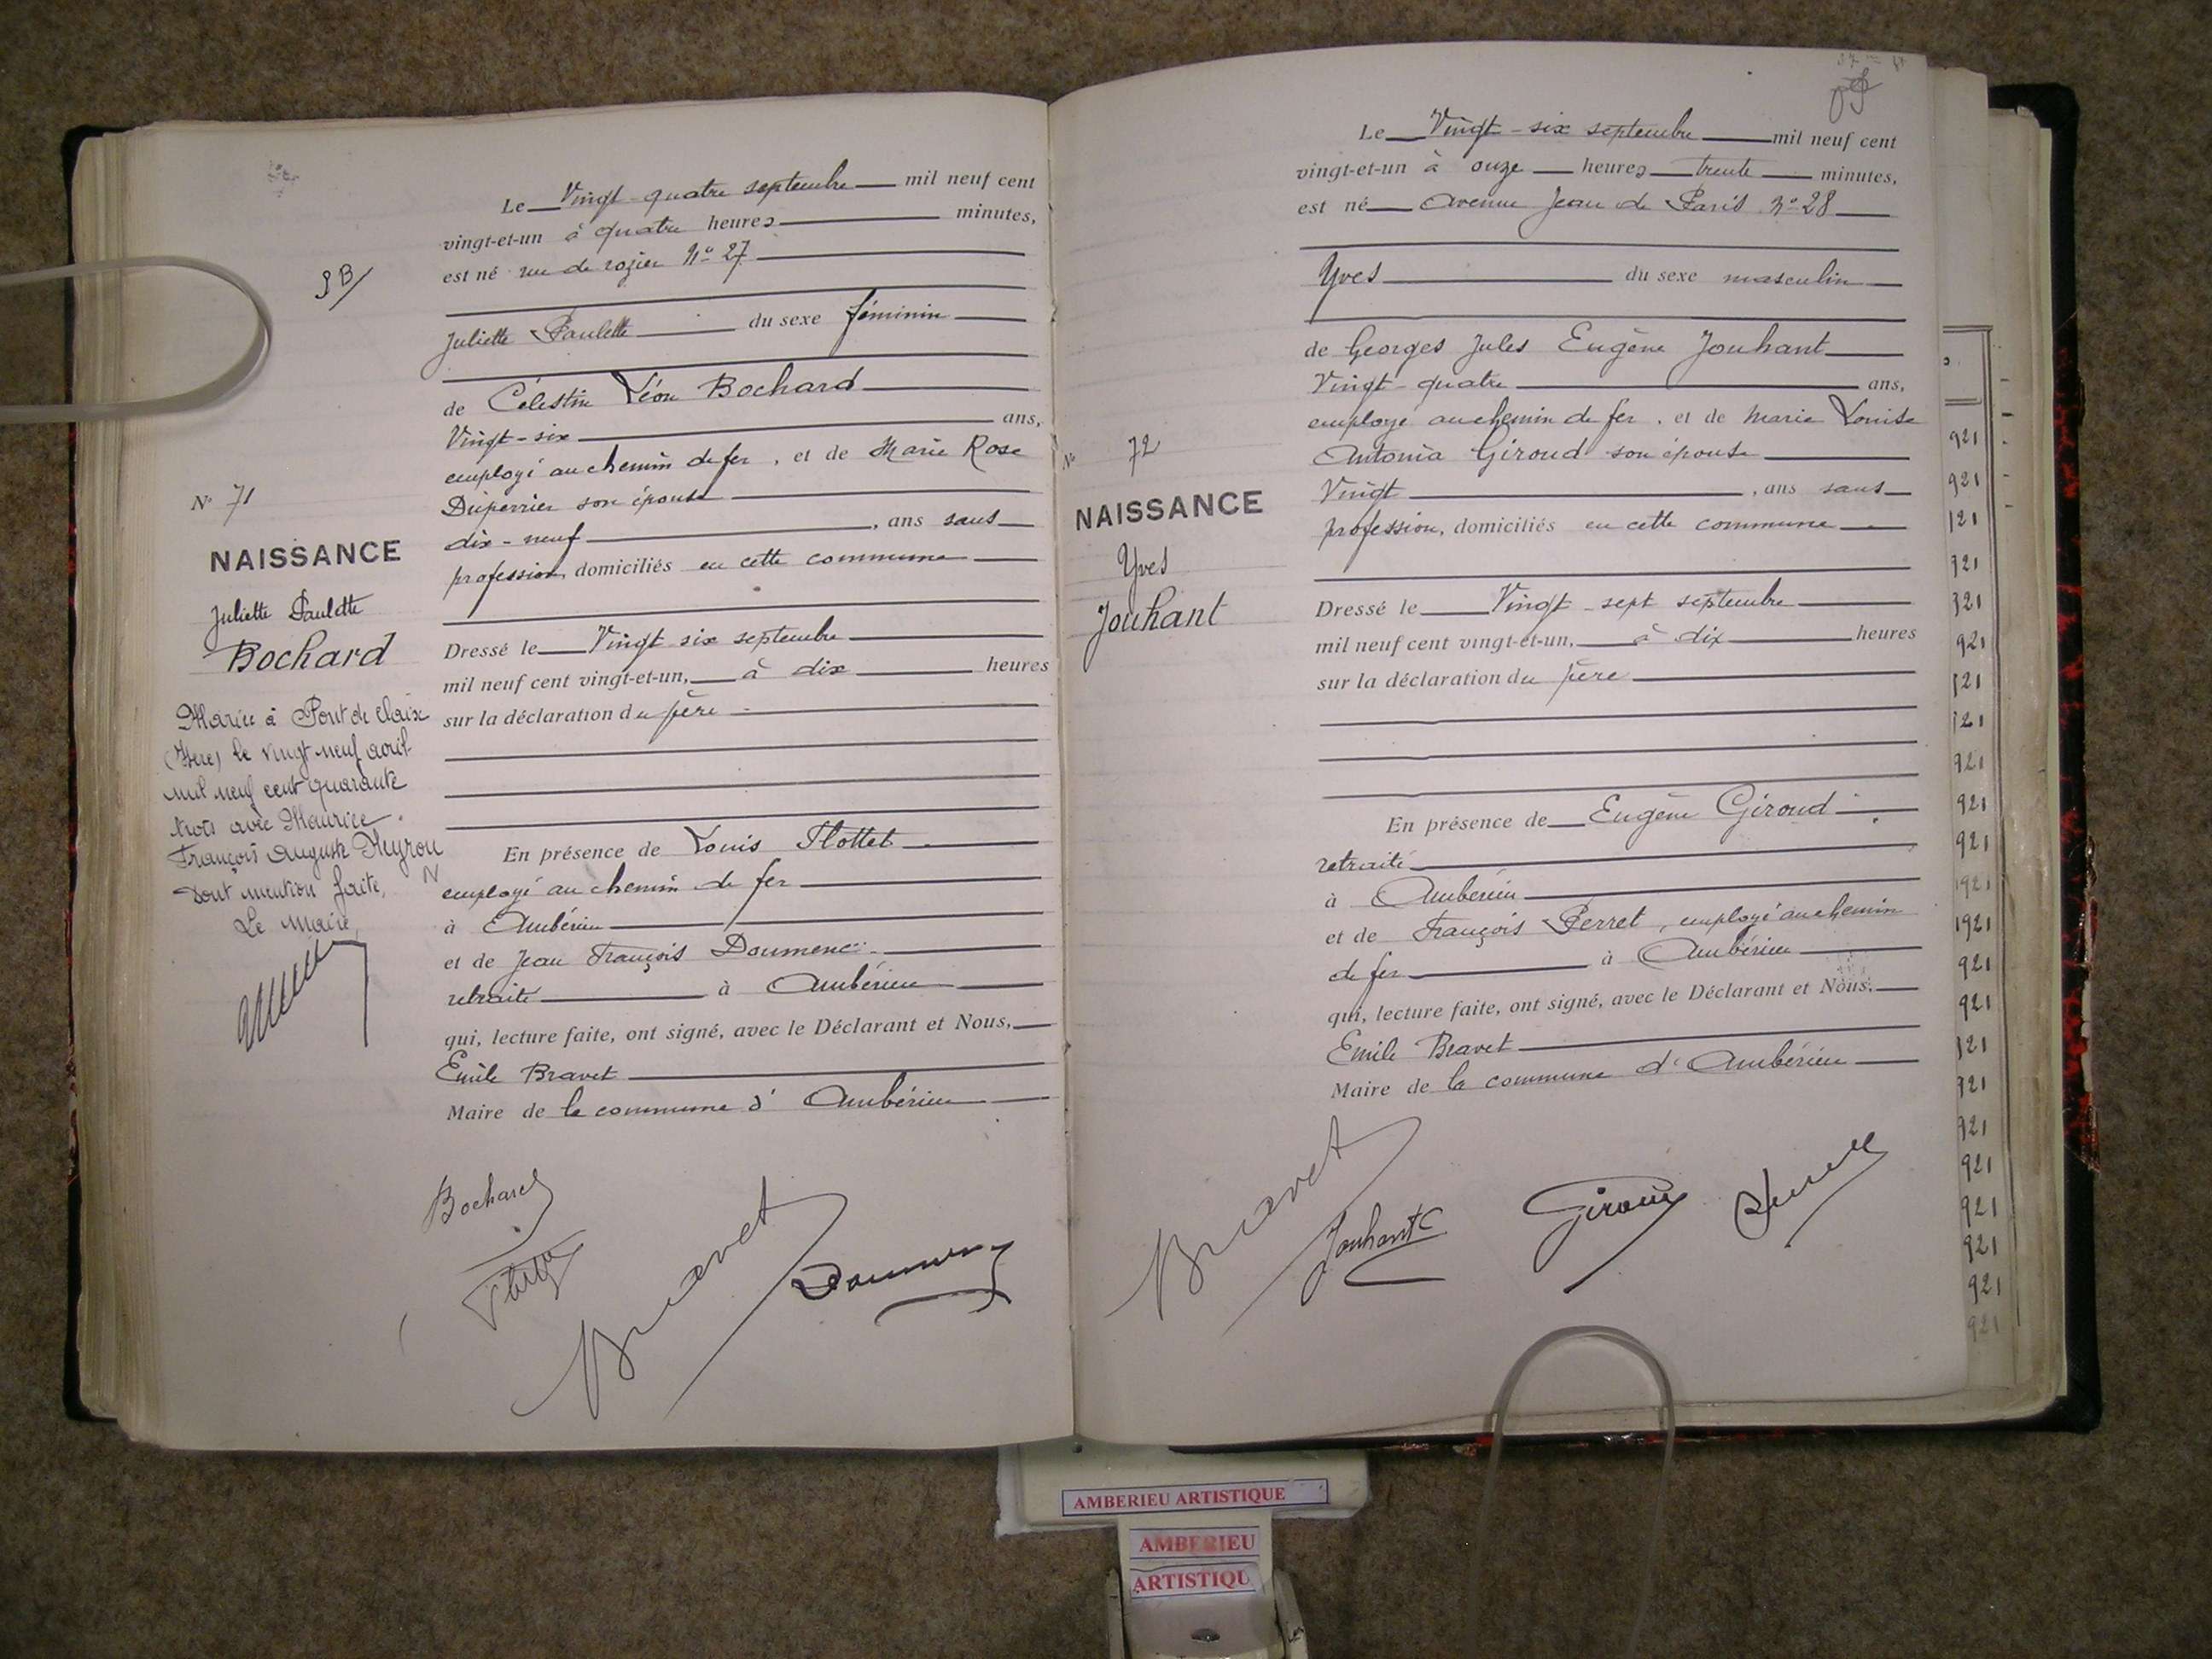 Le Vingt-quatre septembre mil neuf cent
vingt-et-un à quatre heures minutes,
est né rue de rozier N° 27
Juliette Paulette du sexe féminin
de Célestin Léon Bochard
Vingt-six ans,
employé au chemin de fer, et de Marie Rose
Duperrier son épouse
dix-neuf, ans sans
profession, domiciliés en cette commune
Dressé le Vingt six septembre
mil neuf cent vingt-et-un, à dix heures
sur la déclaration du père
En présence de Louis Flottet
employé au chemin de fer
à Ambérieu
et de Jean François Doumenc
retraité à Ambérieu
qui, lecture faite, ont signé, avec le Déclarant et Nous,
Emile Bravet
Maire de la commune d'Ambérieu
Bochard
Bravet
N° 71
NAISSANCE
Juliette Paulette
Bochard
Mariée à Pont de Claix
(Isère) le vingt neuf avril
mil neuf cent quarante
trois avec Maurice
François Auguste
Dont mention faite,
Le Maire,
Le Vingt-six septembre mil neuf cent
vingt-et-un à onze heures trente minutes,
est né avenue Jean de Paris N° 28
Yves du sexe masculin
de Georges Jules Eugène Jouhant
Vingt-quatre ans,
employé au chemin de fer, et de Marie Louise
Antonia Giroud son épouse
Vingt, ans sans
profession, domiciliés en cette commune
Dressé le Vingt-sept septembre
mil neuf cent vingt-et-un, à dix heures
sur la déclaration du père
En présence de Eugène Giroud
retraité
à Ambérieu
et de François Perret, employé au chemin
de fer à Ambérieu
qui, lecture faite, ont signé, avec le Déclarant et Nous,
Emile Bravet
Maire de la commune d'Ambérieu
Bravet
Jouhant
Giroud
N° 72
NAISSANCE
Yves
Jouhant
921
921
121
921
921
921
921
121
921
921
921
1921
1921
921
921
921
921
921
921
921
921
921
921
AMBERIEU ARTISTIQUE
AMBERIEU
ARTISTIQU